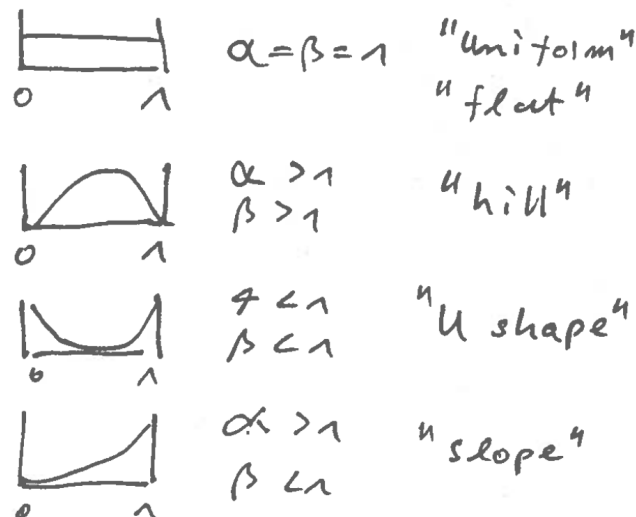 α = β = 1 "Uniform"
"flat"
0 1
α > 1
β > 1 "hill"
0 1
α < 1
β < 1 "U shape"
0 1
α > 1
β < 1 "slope"
0 1